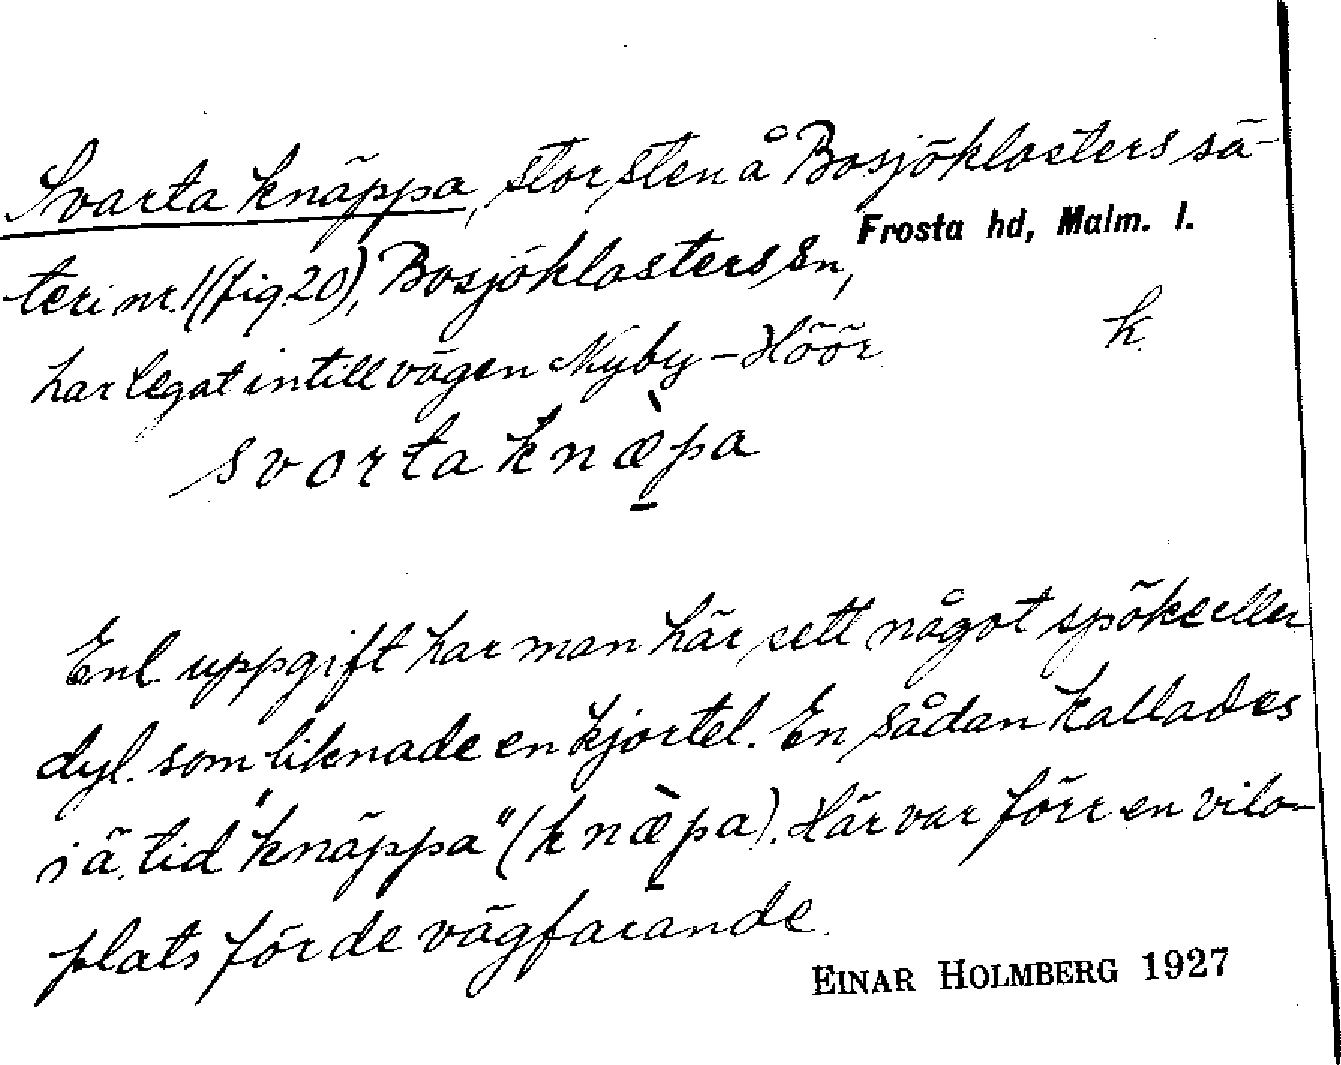 Svarta knäppa, stor sten å Bosjöklosters sä-
teri nr. 1 (fig. 20), Bosjöklosters sn, Frosta hd, Malm. l.
har legat intill vägen Nyby – Höör k.
svarta knæ̀pa
Enl uppgift har man här sett något spöke eller
dyl. som liknade en kjortel. En sådan kallades
i ä. tid "knäppa" (knæ̀pa). Här var förr en vilo-
plats för de vägfarande.
EINAR HOLMBERG 1927